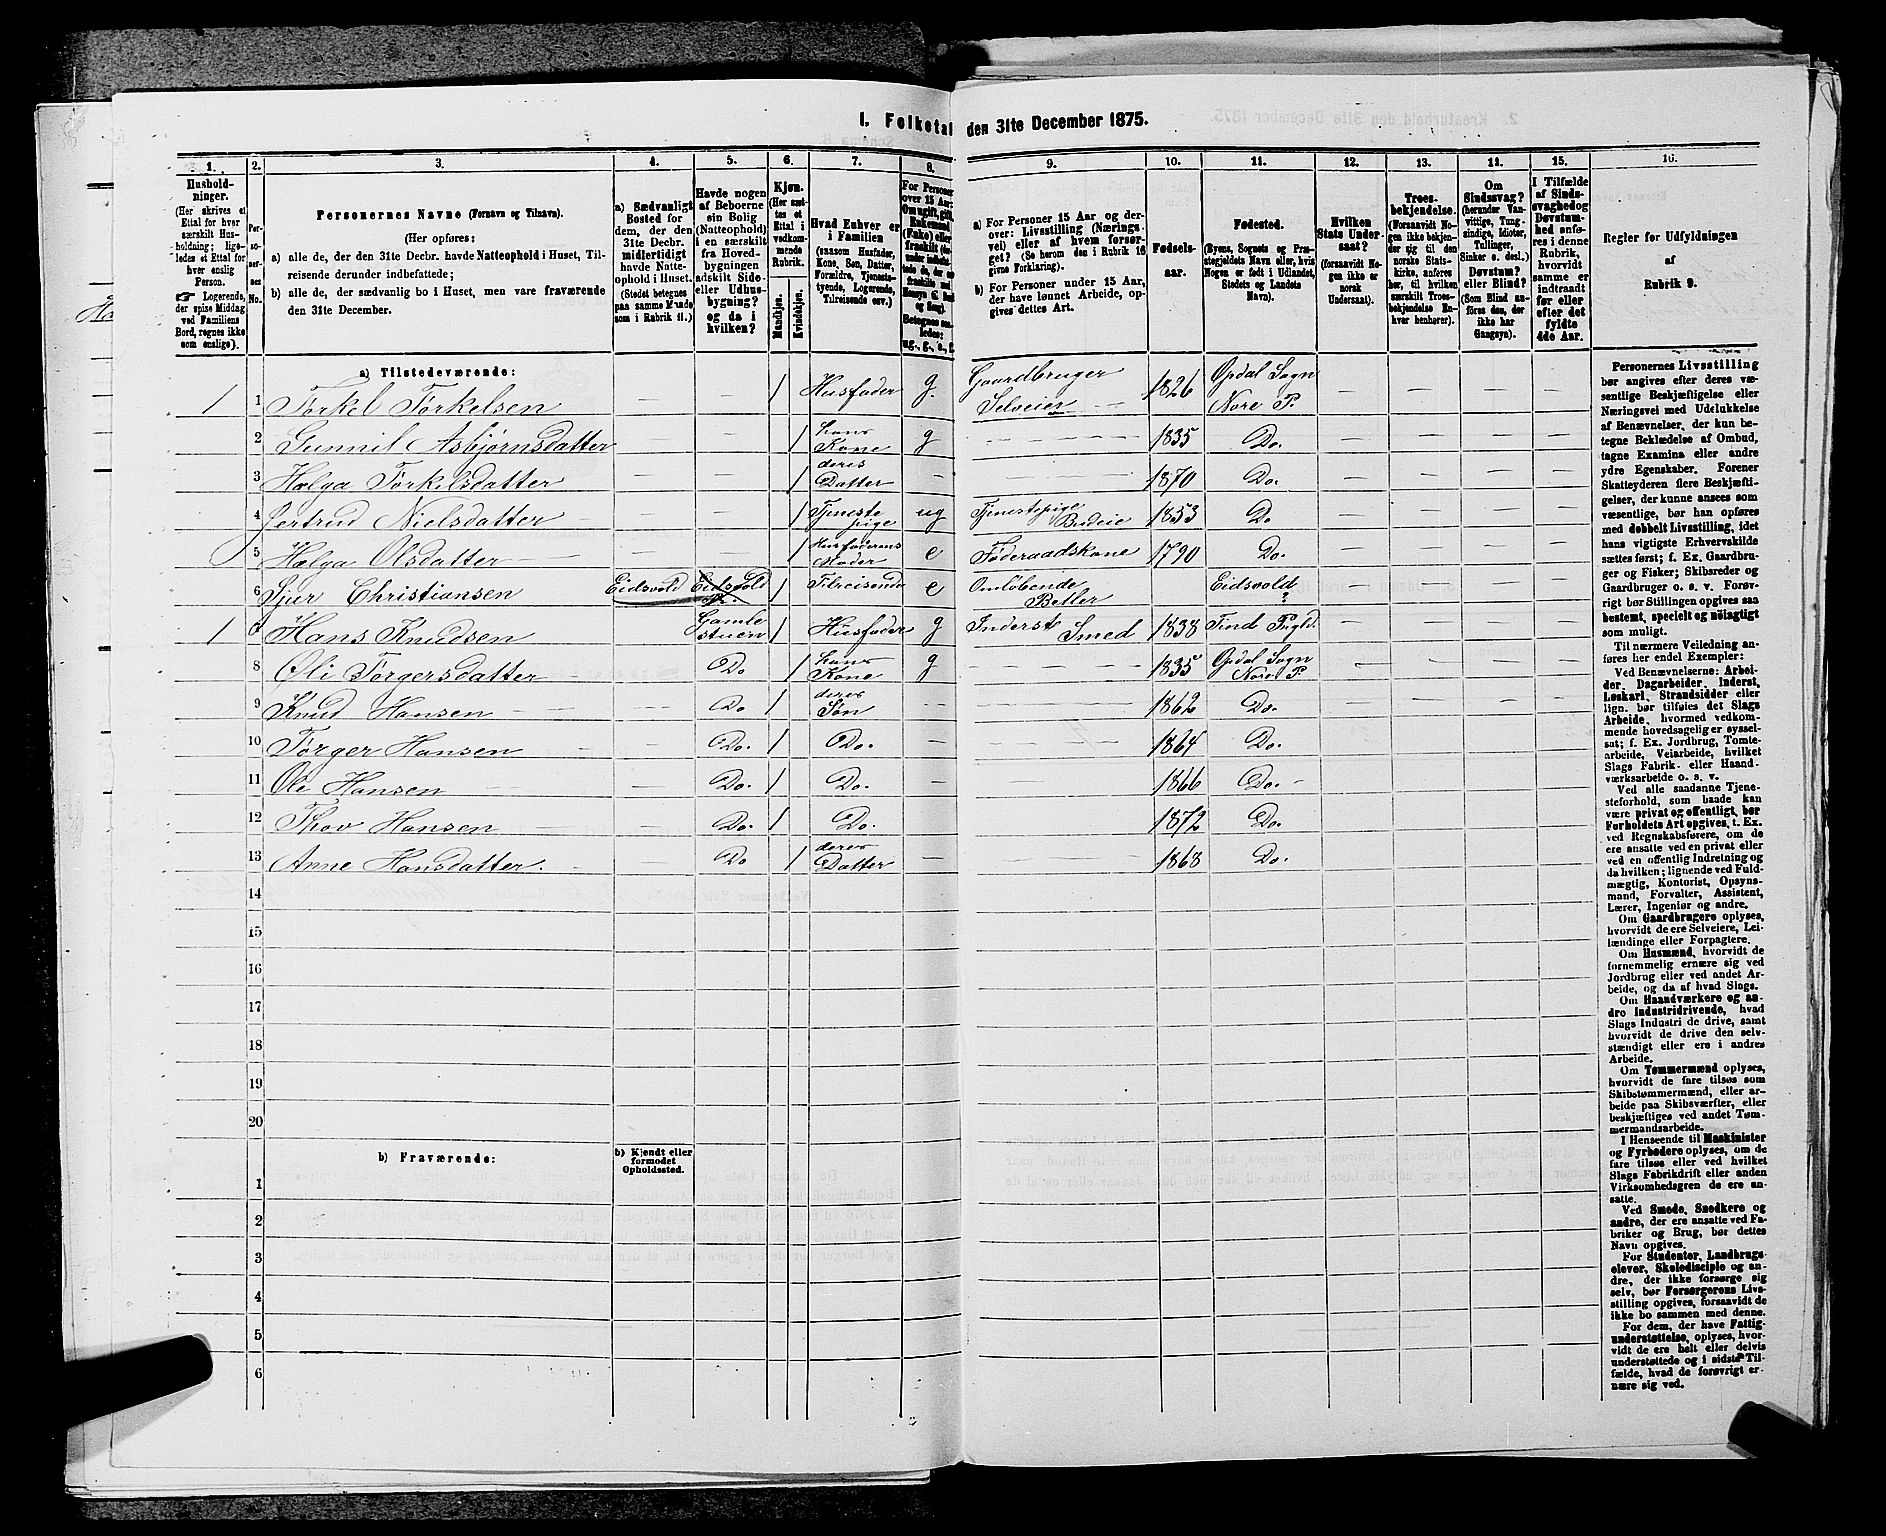 1. Folketal den 31te December 1875.
1. 2. 3. 4. 5. 6. 7. 8. 9. 10. 11. 12. 13. 14. 15. 16.
Hushold-
ninger.
(Her skrives et
Ettal for hver
særskilt Hus-
holdning; lige-
ledes et Ettal for
hver enslig
Person.
☛ Logerende,
der spise Middag
ved Familiens
Bord, regnes ikke
som enslige).
Personernes No.
Personernes Navne (Fornavn og Tilnavn).
(Her opføres:
a) alle de, der den 31te Decbr. havde Natteophold i Huset, Til-
reisende derunder indbefattede;
b) alle de, der sædvanlig bo i Huset, men vare fraværende
den 31te December.
a) Sædvanligt
Bosted for
dem, der den
31te Decbr.
midlertidigt
havde Natte-
ophold i Huset.
(Stedet betegnes
paa samme Maade
som i Rubrik 11.)
Havde nogen
af Beboerne
sin Bolig
(Natteophold)
i en særskilt
fra Hoved-
bygningen
adskilt Side-
eller Udhus-
bygning?
og da i
hvilken?
Kjøn.
(Her sæt-
tes et
Ettal i
vedkom-
mende
Rubrik.
Mandkjøn.
Kvindekjøn.
Hvad Enhver er
i Familien
(saasom Husfader,
Kone, Søn, Datter,
Forældre, Tjeneste-
tyende, Logerende,
Tilreisende osv.)
For Personer
over 15 Aar:
Om ugift, gift,
Enkemand
(Enke) eller
fraskilt
Betegnes saa-
ledes:
ug., g., e., f.
a) For Personer 15 Aar og der-
over: Livsstilling (Nærings-
vei) eller af hvem forsør-
get? (Se herom den i Rubrik 16
givne Forklaring).
b) For Personer under 15 Aar,
der have lønnet Arbeide, op-
gives dettes Art.
Fødsels-
aar.
Fødested.
(Byens, Sognets og Præ-
stegjeldets Navn eller, hvis
Nogen er født i Udlandet,
Stedets og Landets
Navn).
Hvilken
Stats Under-
saat?
(forsaavidt No-
gen ikke er
norsk
Undersaat).
Troes-
bekjendelse.
(Forsaavidt No-
gen ikke bekjen-
der sig til den
norske Stats-
kirke, anføres
her, til hvilken
særskilt Troes-
bekjendelse En-
hver henhører).
Om
Sindssvag?
(herunder Van-
vittige, Tung-
sindige, Idioter,
Tullinger,
Sinker o. desl.)
Døvstum?
eller Blind?
(Som Blind an-
føres den, der
ikke har
Gangsyn).
I Tilfælde
af Sinds-
svaghed og
Døvstum-
hed anfø-
res i denne
Rubrik,
hvorvidt
samme er
indtraadt
før eller
efter det
fyldte
4de Aar.
Regler for Udfyldningen
af
Rubrik 9.
a) Tilstedeværende:
1 1 Torkel Torkelsen — — 1 Husfader g. Gaardbruger Selveier 1826 Opdal Sogn Nore P. — — — —
2 Gunnil Asbjørnsdatter — — 1 hans Kone g — 1835 Do. — — — —
3 Helga Torkelsdatter — — 1 deres Datter — — 1870 Do. — — — —
4 Gertrud Nielsdatter — — 1 Tjeneste pige ug Tjenestepige Budeie 1853 Do — — — —
5 Helga Olsdatter — — 1 Husfaderens Moder e Føderaadskone 1790 Do. — — — —
6 Sjur Christiansen Eidsvold Eidsvold 1 Tilreisende e Omløbende Betler Eidsvold ? — — — —
1 7 Hans Knudsen Gamle stuen 1 Husfader g Inderst Smed 1838 Tind Pgld. — — — —
8 Oli Torgersdatter — Do 1 hans Kone g — 1835 Opdal Sogn Nore P. — — — —
9 Knud Hansen — Do 1 deres Søn — — 1862 Do. — — — —
10 Torger Hansen — Do. 1 Do. — — 1864 Do.
11 Ole Hansen — Do. 1 Do. — — 1866 Do. —
12 Thov Hansen — Do. 1 Do. — — 1872 Do.
13 Anne Hansdatter. — Do 1 deres Datter — — 1868 Do.
14
15
16
17
18
19
20
b) Fraværende:
b) Kjendt eller
formodet
Opholdssted.
1
2
3
4
5
6
Personernes Livsstilling
bør angives efter deres væ-
sentlige Beskjæftigelse eller
Næringsvei med Udelukkelse
af Benævnelser, der kun be-
tegne Beklædelse af Ombud,
tagne Examina eller andre
ydre Egenskaber. Forener
Skatteyderen flere Beskjæfti-
gelser, der kunne ansees som
væsentlige, bør han opføres
med dobbelt Livsstilling, idet
hans vigtigste Erhvervskilde
sættes først; f. Ex. Gaardbru-
ger og Fisker; Skibsreder og
Gaardbruger o. s. v. Forøv-
rigt bør Stillingen opgives saa
bestemt, specielt og nøiagtigt
som muligt.
Til nærmere Veiledning an-
føres her endel Exempler:
Ved Benævnelserne: Arbei-
der, Dagarbeider, Inderst,
Løskarl, Strandsidder eller
lign. bør tilføies det Slags
Arbeide, hvormed vedkom-
mende hovedsagelig er syssel-
sat; f. Ex. Jordbrug, Tomte-
arbeide, Veiarbeide, hvilket
Slags Fabrik- eller Haand-
værksarbeide o. s. v.
Ved alle saadanne Tjene-
steforhold, som baade kan
være privat og offentligt, bør
Forholdets Art opgives, t. Ex.
ved Regnskabsførere, om de
ere ansatte ved en privat eller
ved en offentlig Indretning og
da hvilken; lignende ved Fuld-
mægtig, Kontorist, Opsyns-
mand, Forvalter, Assistent,
Lærer, Ingeniør og andre.
Om Gaardbrugere oplyses,
hvorvidt de ere Selveiere, Lei-
lændinge eller Forpagtere.
Om Husmænd, hvorvidt de
fornemmelig ernære sig ved
Jordbrug eller ved andet Ar-
beide, og da af hvad Slags.
Om Haandværkere og an-
dre Industridrivende, hvad
Slags Industri de drive, samt
hvorvidt de drive den selv-
stændigt eller ere i andres
Arbeide.
Om Tømmermænd oplyses,
hvorvidt de fare tilsøs som
Skibstømmermænd, eller ar-
beide paa Skibsværfter, eller
beskjæftiges ved andet Tøm-
mermandsarbeide.
I Henseende til Maskinister
og Fyrbødere oplyses, om de
fare tilsøs eller ved hvilket
Slags Fabrikdrift eller anden
Virksomhedsgren de ere an-
satte.
Ved Smede, Snedkere og
andre, der ere ansatte ved Fa-
briker og Brug, bør dettes
Navn opgives.
For Studenter, Landbrugs-
elever, Skoledisciple og an-
dre, der ikke forsørge sig
selv, bør Forsørgerens Livs-
stilling opgives, forsaavidt de
ikke bo sammen med denne.
For dem, der have Fattig-
understøttelse, oplyses, hvor-
vidt de ere helt eller delvis
understøttede og i sidste Til-
fælde, hvad de forøvrigt er-
nære sig ved.